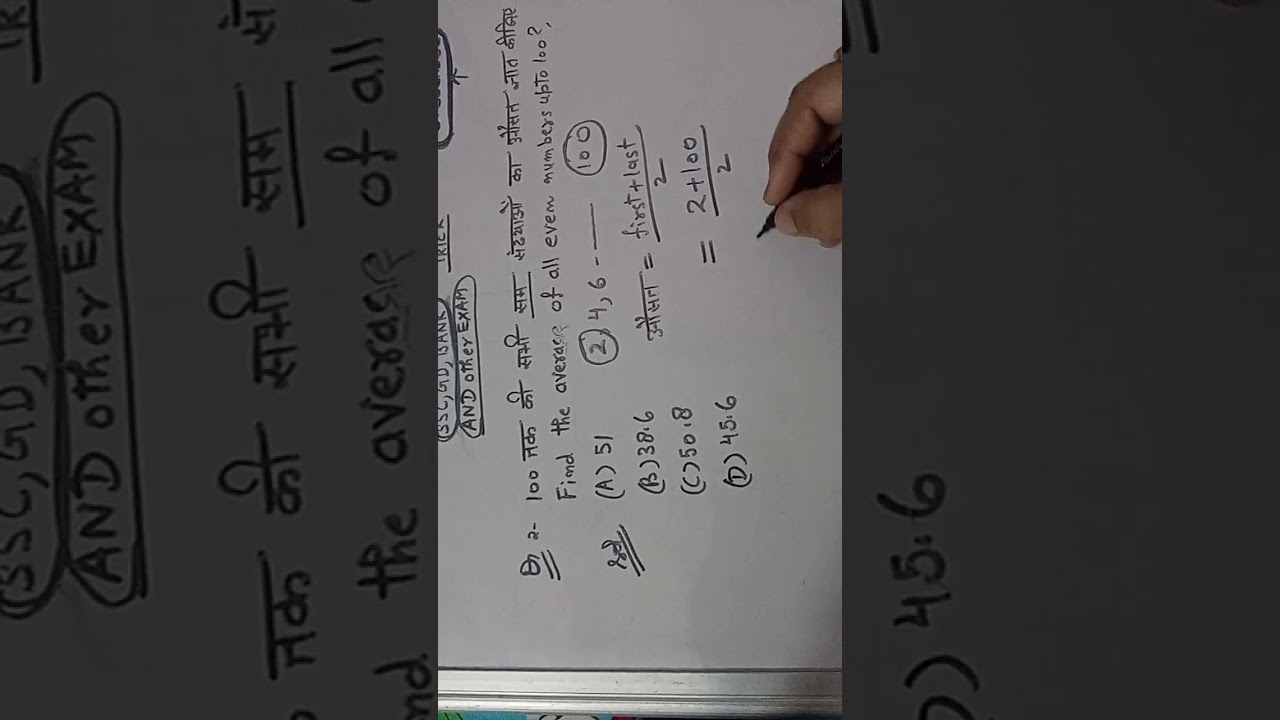 SSC, GD, BANK
TRICK
AND other EXAM
Q 2- 100 तक की सभी सम संख्याओं का औसत ज्ञात कीजिए
Find the average of all even numbers upto 100?,
(A) 51
2, 4, 6 - —— 100
(B) 38.6
औसत = first+last
2
(C) 50.8
= 2+100
2
(D) 45.6